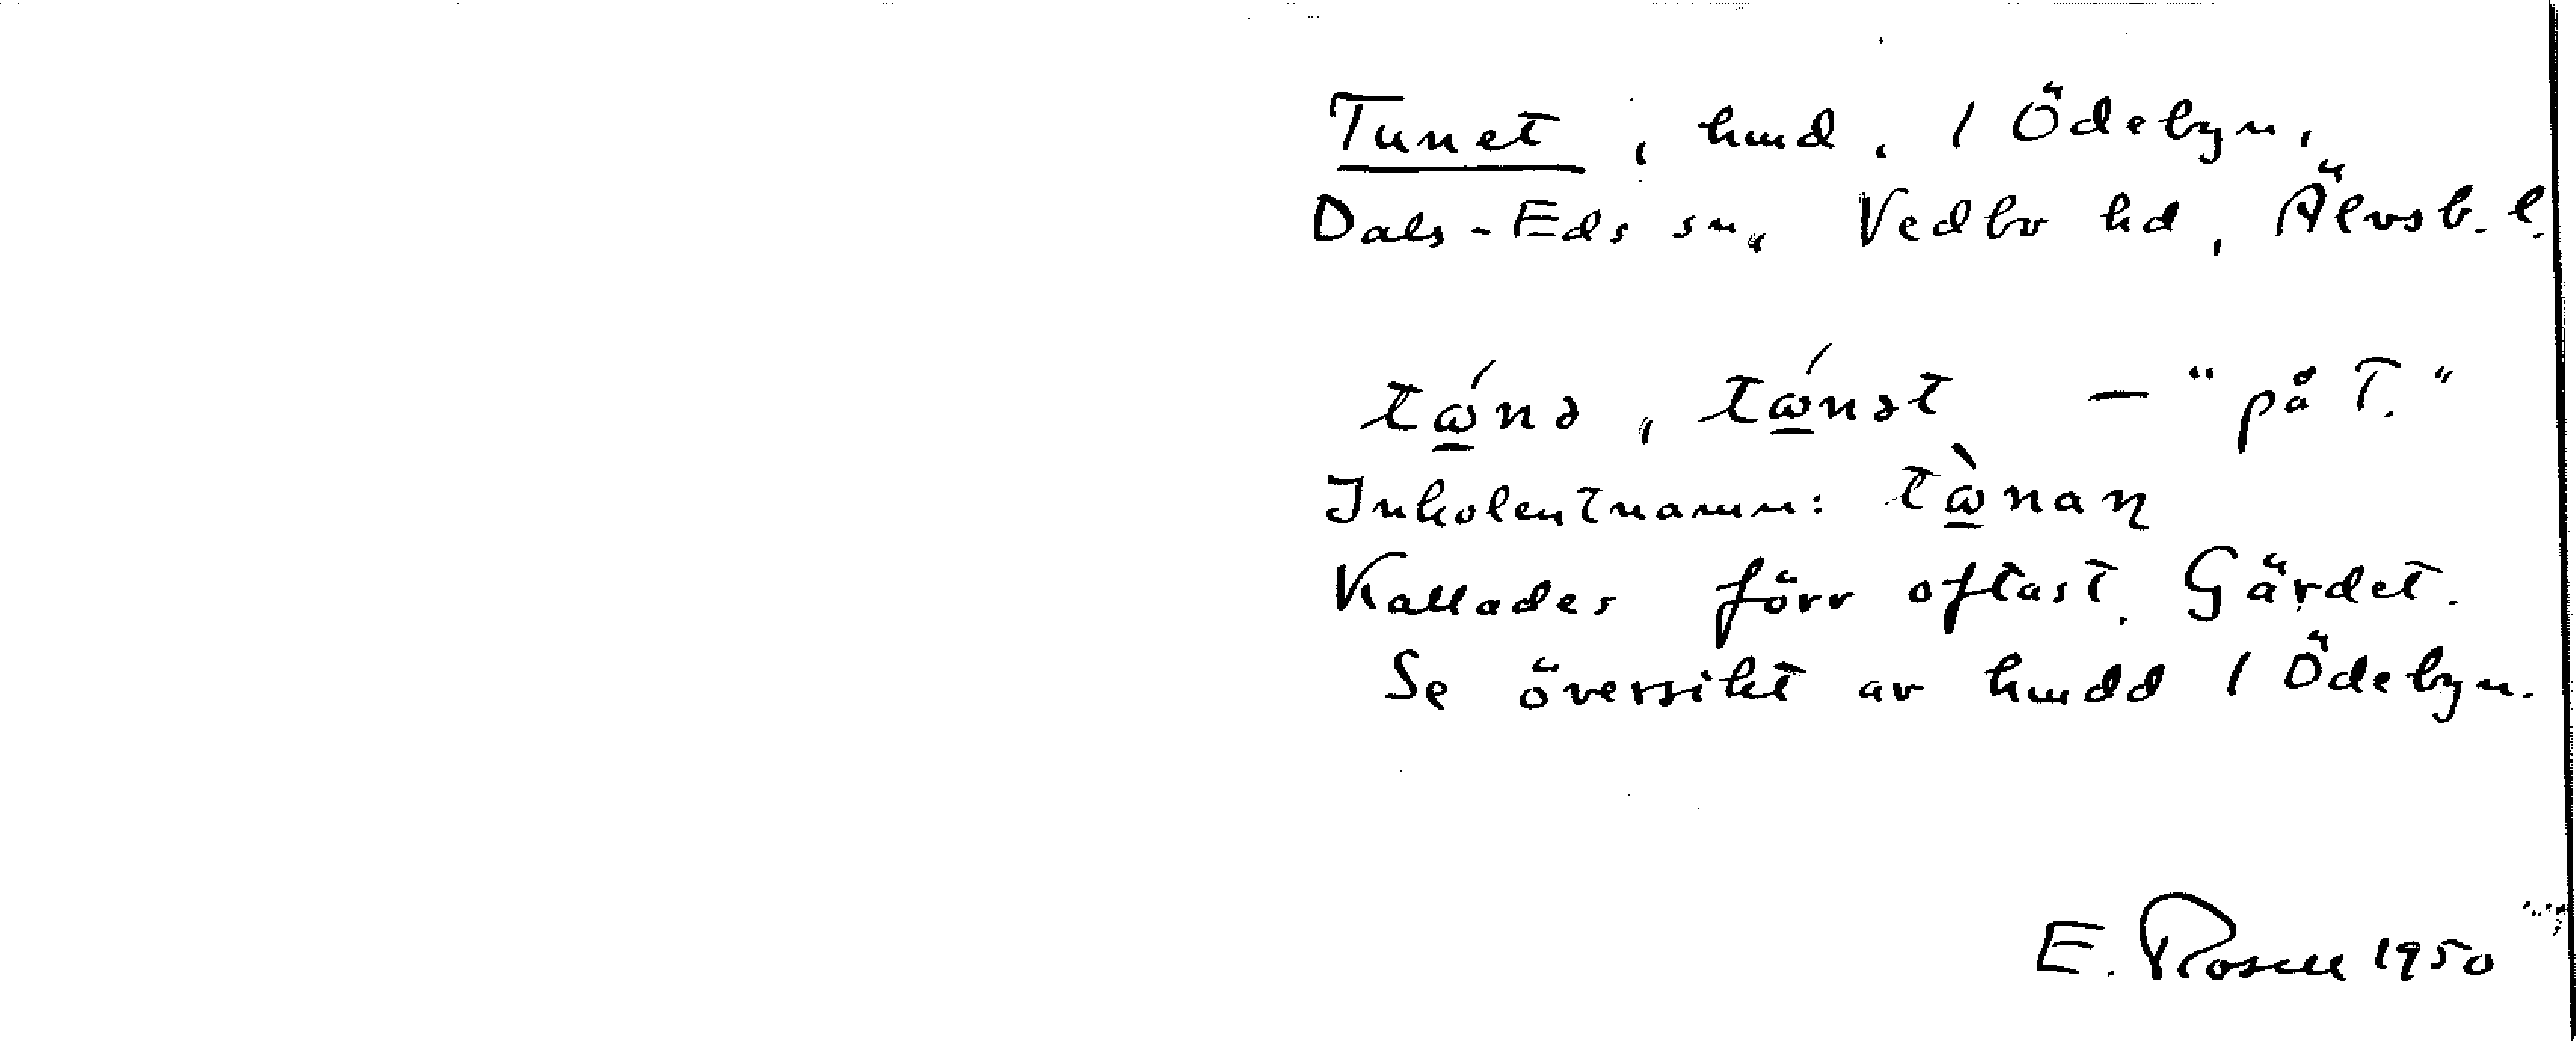 Tunet, hmd. i Ödebyn,
Dals-Eds sn, Vedbo hd, Älvsb. l.
tώ̲nə, tώ̲nət — "på T."
Inkolentnamn: tὼ̲naɳ
Kallades förr oftast Gärdet.
Se översikt av hmdd i Ödebyn.
E. Rosell 1950